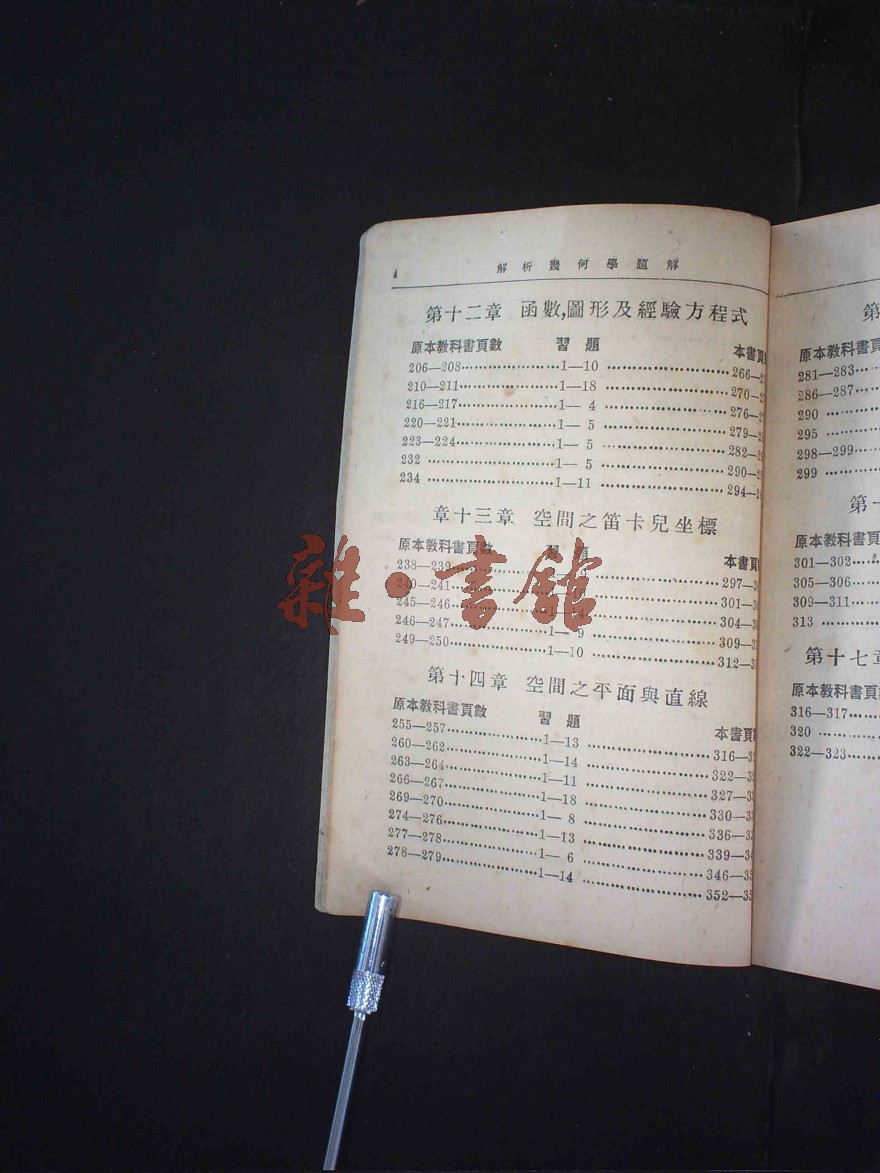 4 解析幾何學題解
第十二章 函數,圖形及經驗方程式
原本教科書頁數 習題 本書頁
206—208 1—10 266—
210—211 1—18 270—
216—217 1—4 276—
220—221 1—5 279—
223—224 1—5 282—
232 1—5 290—
234 1—11 294—
章十三章 空間之笛卡兒坐標
原本教科書頁數 習題 本書頁
238—239 297—
240—241 301—
245—246 304—
246—247 1—9 309—
249—250 1—10 312—
第十四章 空間之平面與直線
原本教科書頁數 習題 本書頁
255—257 1—13 316—
260—262 1—14 322—
263—264 1—11 327—
266—267 1—18 330—
269—270 1—8 336—
274—276 1—13 339—
277—278 1—6 346—
278—279 1—14 352—
雜·書館
第
原本教科書頁
281—283
286—287
290
295
298—299
299
第十
原本教科書頁
301—302
305—306
309—311
313
第十七章
原本教科書頁
316—317
320
322—323